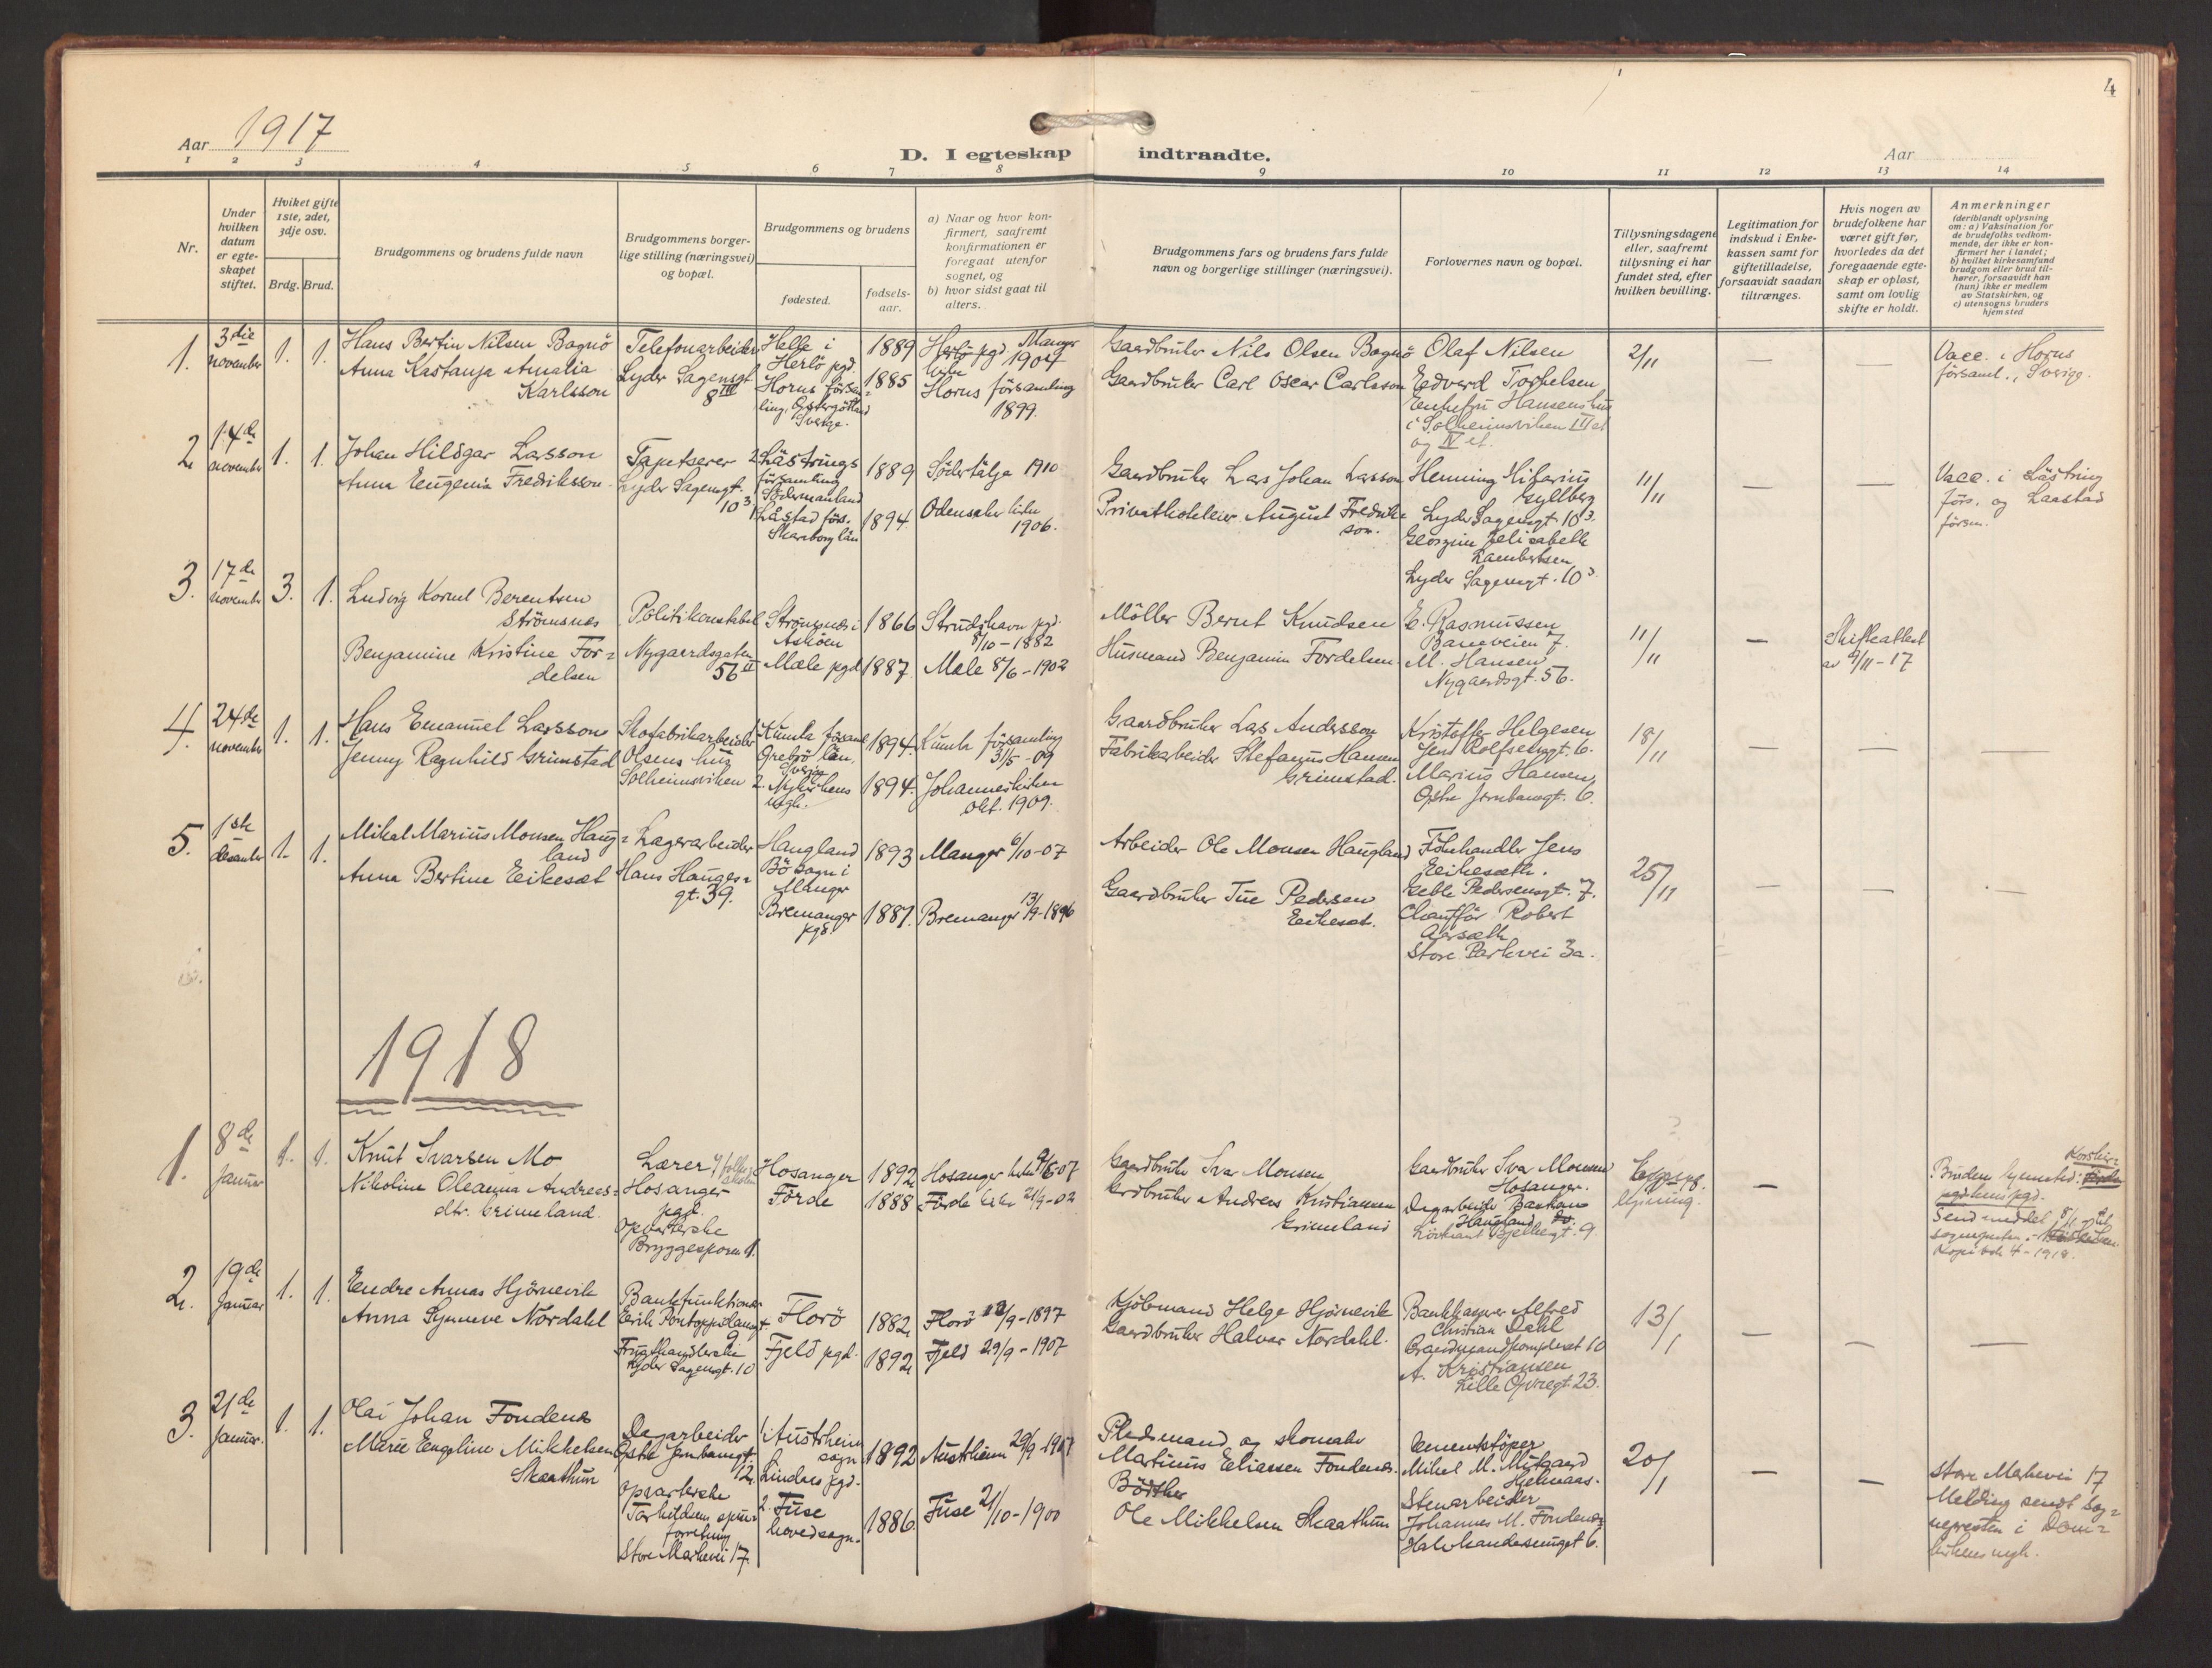 4
Aar 1917
D. I egteskap indtraadte.
Aar
1 2 3 4 5 6 7 8 9 10 11 12 13 14
Nr.
Under hvilken datum er egte- skapet stiftet.
Hviket gifte 1ste, 2det, 3dje osv.
Brdg. Brud.
Brudgommens og brudens fulde navn
Brudgommens borger- lige stilling (næringsvei) og bopæl.
Brudgommens og brudens
fødested.
fødsels- aar.
a) Naar og hvor kon- firmert, saafremt konfirmationen er foregaat utenfor sognet, og
b) hvor sidst gaat til alters.
Brudgommens fars og brudens fars fulde navn og borgerlige stillinger (næringsvei).
Forlovernes navn og bopæl.
Tillysningsdagene eller, saafremt tillysning ei har fundet sted, efter hvilken bevilling.
Legitimation for indskud i Enke- kassen samt for giftetilladelse, forsaavidt saadan tiltrænges.
Hvis nogen av brudefolkene har været gift før, hvorledes da det foregaaende egte- skap er opløst, samt om lovlig skifte er holdt.
Anmerkninger (deriblandt oplysning om: a) Vaksination for de brudefolks vedkom- mende, der ikke er kon- firmert her i landet; b) hvilket kirkesamfund brudgom eller brud til- hører, forsaavidt han (hun) ikke er medlem av Statskirken, og c) utensogns bruders hjemsted
1. 3die november 1. 1.
Hans Bertin Nilsen Bognö
Anna Kastanja Amalia
Karlsson
Telefonarbeider
Lyder Sagensgt
8 III
Helle i
Herlö pgd.
Horns försam=
ling, Östergötland
Sverge.
1889
1885
Herlö pgd Manger
1904
Horns församling
1899.
Gaardbruker Nils Olsen Bognö
Gaardbruker Carl Oscar Carlsson
Olaf Nilsen
Edvard Torkelsen
Enkefru Hansens hus
i Solheimsviken III et
og IV et.
2/11
—
—
Vacc. i Horns
församl., Sverige.
2 14de november 1. 1.
Johan Hildgar Larsson
Anna Eugenia Fredriksson
Tapetserer
Lyder Sagensgt.
10 3
Lästrings
församling
Södermanland
Låstad förs.
Skaraborg län
1889
1894.
Södertälje 1910
Odensaker kirke
1906.
Gaardbruker Lars Johan Larsson
August Fredriks
son.
Henning Hilarius
Gyllberg
Lyder Sagensgt 10 3.
Georgine Elisabeth
Lambertsen
Lyder Sagensgt. 10 3
11/11
—
—
Vacc. i Lästring
förs. og Laastad
försm.
3. 17de november 3. 1.
Ludvig Kornel Berentsen
Strömsnes
Benjamine Kristine For=
delsen
Politikonstabel
Nygaardsgaten
56 II
Strömsnes i
Asköen
Mæle pgd
1866
1887.
Strudshavn pgd.
8/10 - 1882
Male 8/6 - 1902
Möller Bernt Knudsen
Husmand Benjamin Fordelsen.
E. Rasmussen
Baneveien 7.
M. Hansen
Nygaardsgt. 56.
11/11
—
Skifteattest
av 9/11 - 17
4. 24de november 1. 1.
Hans Emanuel Larsson
Jenny Ragnhild Grimstad
Skofabrikarbeider
Olsens hus
Solheimsviken
Kumla församl
Örebro län,
Sverige
2. Nykirkens
sogn.
1894.
1894.
Kumla församling
31/5 - 09
Johanneskirken
okt. 1909.
Gaardbruker Lars Andersson
Fabrikarbeider Stefanus Hansen
Grimstad.
Kristoffer Helgesen
Jens Rolfsensgt. 6.
Marius Hansen,
Østre Jernbanegt. 6.
18/11
—
—
—
5. 1ste desember 1. 1.
Mikal Marius Monsen Haug=
land
Anna Bertine Eikeset
Lagerarbeider
Hans Hauges=
gt. 39.
Haugland
Bö sogn i
Manger
Bremanger
pgd.
1893
1887.
Manger 6/10 - 07
Bremanger 13/9 - 1896
Arbeider Ole Monsen Haugland
Gaardbruker Tue Pedersen
Eikeset.
Jens
Eikeseth.
Geble Pedersensgt. 7.
Chauffør Robert
Aarsæth
Store Parkvei 3a.
25/11
—
—
—
1918
1. 8de januar 1. 1.
Knut Ivarsen Mo
Nikoline Oleanna Andreas=
dtr. Grimeland.
Lærer
Hosanger
pgd.
Opvarterske
Bryggesporen 1.
Hosanger
Förde
1892
1888
Hosanger kirke 9/6-07
Förde kirke 21/9-02
Gaardbruker Ivar Monsen
Grdbruker Andreas Kristiansen
Grimeland
Gaardbruker Ivar Monsen
Hosanger.
Haugland
9.
—
Brudens hjemsted: Korskir=
kens pgd.
Send meddel. 8/1 til
sognepresten.
Kopi bok 4 - 1918.
2. 19de januar 1. 1.
Endre Annas Hjörnevik
Anna Synneve Nordahl
Bankfunktionær
Erik Pontoppidansgt.
9
Frugthandlerske
Lyder Sagensgt. 10
Florö
Fjeld pgd.
1882
1892
Florö 12/9-1897
Fjeld 29/9 - 1907
Kjöbmand Helge Hjörnevik
Gaardbruker Halvar Nordahl.
Bankkasserer Alfred
Christian Dahl
10
A. Kristiansen
Lille Øvregt. 23.
13/1
—
—
—
3. 21de januar. 1. 1.
Olai Johan Fondenes
Marie Engeline Mikkelsen
Skaathun
Dagarbeider
Østre Jernbanegt.
12.
Opvarterske
Store Markevei 17.
1. Austrheim
sogn
Lindaas pgd.
2. Fuse
hovedsogn.
1892
1886.
Austrheim 29/9 - 1907
Fuse 21/10 - 1900
Pladsmand og skomaker
Martinus Eliassen Fondenes.
Bödker
Ole Mikkelsen Skaathun
Cementstöper
Mikal M. Mitgaard
Stenarbeider
Johannes M. Fondenes
6.
20/1
—
—
Store Markevei 17
Melding sendt Sog=
nepresten i Dom=
kirkens mgh.